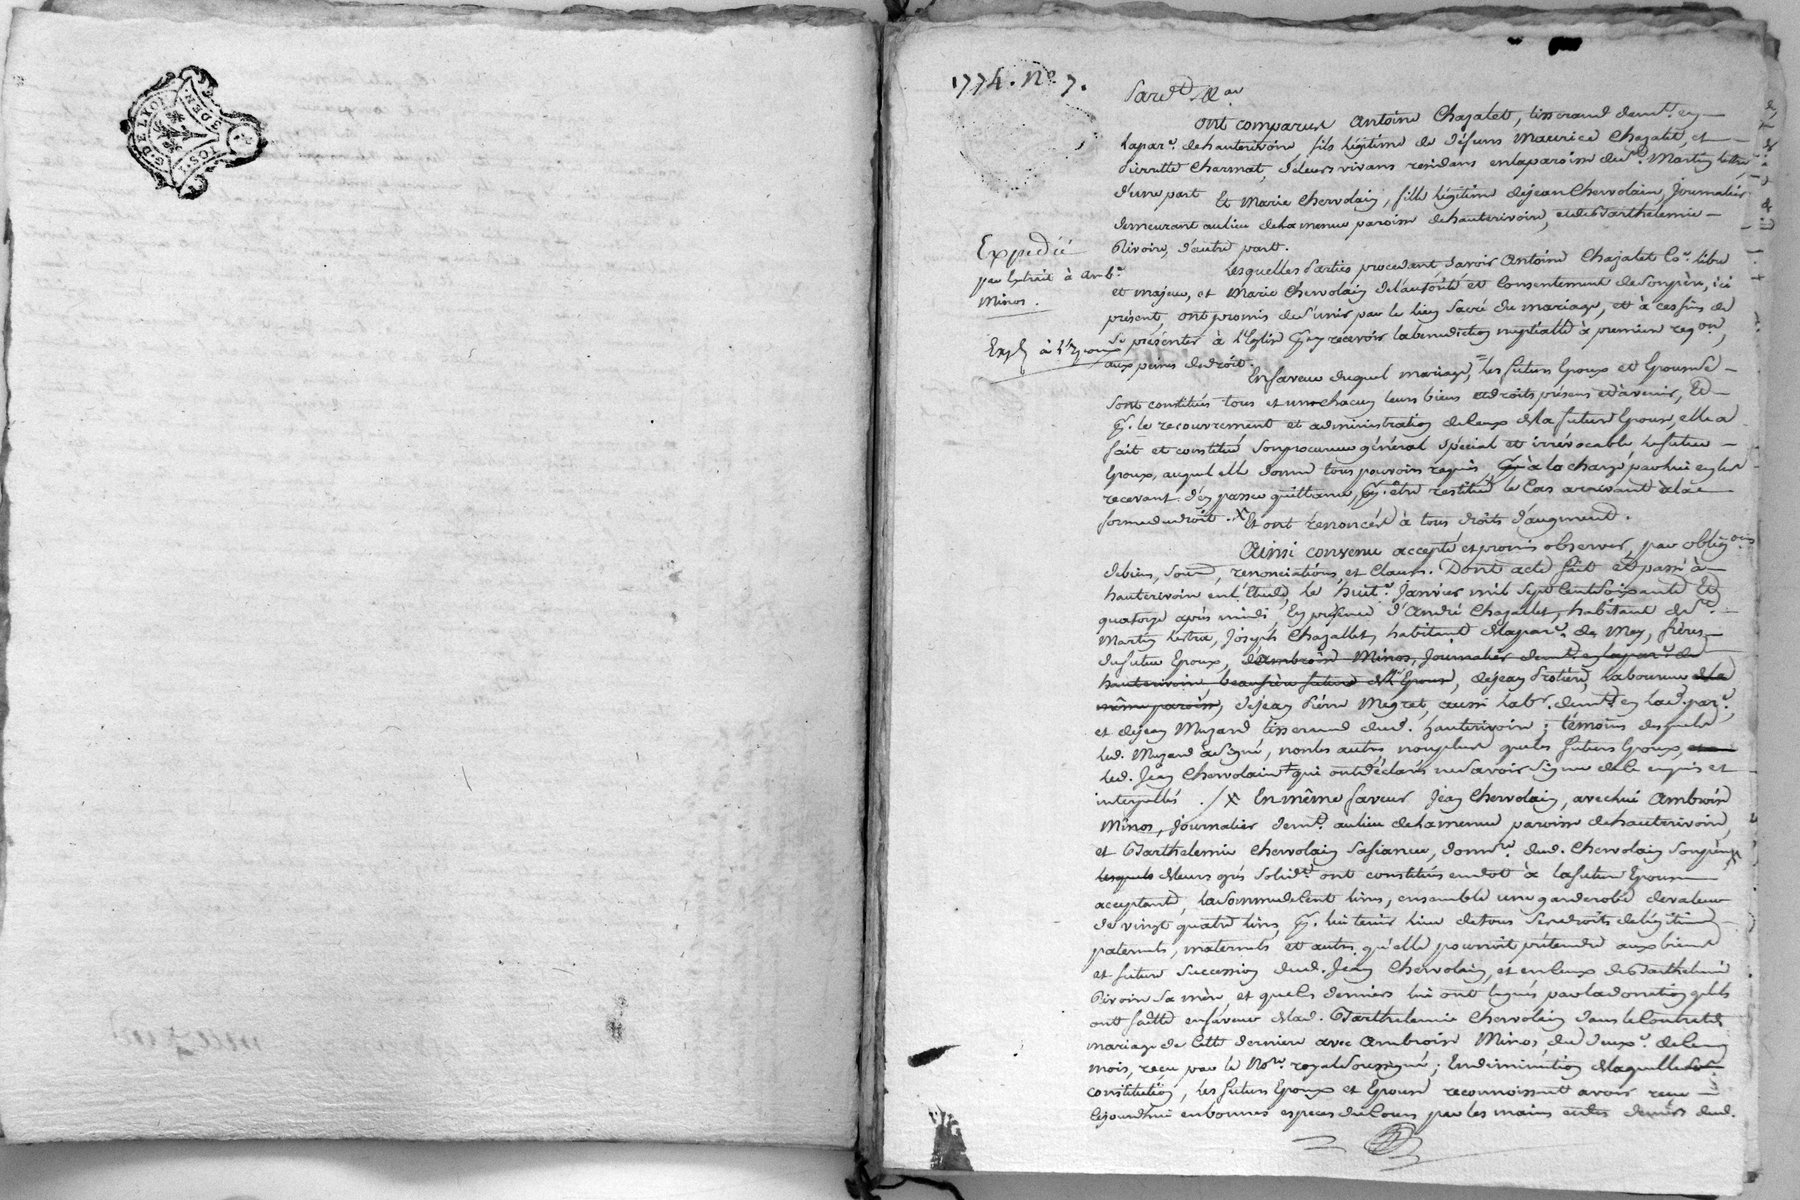 G. DE LYON
2 S. DER.
1774. No. 7.
Pard.t &a.
ont comparus Antoine Chazalet, tisserand demt. en
lapar.e de hauterivoire fils légitime de défuns Maurice Chazalet, et
Pierrette Charmat, de leurs vivans residans en la paroisse de St. Martin lestra,
d'une part Et Marie Chervolain, fille légitime de jean Chervolain, Journalier
demeurant au lieu de hamenue paroisse de hauterivoire, et de Barthelemie
Rivoire, d'autre part.
Expedié
par Extrait à Amb.e
Minos.
Lesquelles Parties procedant savoir Antoine Chazalet co.e libre
et majeur, et Marie Chervolain de l'autorité et consentement de son père, ici
présent, ont promis de s'unir par le lien sacré du mariage, et à ces fins de
Exp. à l'Epoux
se présenter à l'Eglise pr. y recevoir la benediction nuptialle à premiere reqon,
aux peines de droit.
En faveur duquel mariage, les futurs Epoux et Epouse se
sont constitués tous et un chacun leurs biens et droits présens et à venir, Et
pr. le recouvrement et administration de ceux de la future Epouse, elle a
fait et constitué son procureur général spécial et irrévocable le futur
Epoux, auquel elle donne tous pouvoirs requis, à la charge par lui en les
recevant d'en passer quittance, pr. être restitué le cas arrivant à la
forme du droit. X Et ont renoncés à tous droits d'augment.
Ainsi convenu accepté et promis observer, par obligons
de biens, soumd, renonciations, et clauses. Dont acte fait et passé à
hauterivoire en l'Etude, le huit.e Janvier mil sept cent soixante Et
quatorze après midi, En présence d'André Chazallet, habitant de St.
Martin lestra, Joseph Chazallet, habitant de la par.e de Mey, frères
du futur Epoux, d'Ambroise Minos, Journalier demt. en la par.e de
hauterivoire, beaufrère futur de l'Epouse, de jean Protiere, laboureur de la
même paroisse, de jean Pierre Megret, aussi labr. demt. en lad. par.e,
et de jean Muzard tisserand dud. hauterivoire; témoins desquels
led. Muzard a signé, non les autres, non plus que les futurs Epoux,
led. Jean Chervolain + qui ont déclarés ne savoir signer de ce enquis et
interpellés. /X En même faveur Jean Chervolain, avec lui Ambroise
Minos, Journalier demt. au lieu de hamenue paroisse de hauterivoire,
et Barthelemie Chervolain sa fiancée, donnre. dud. Chervolain son père X
lesquels de leurs grés solidt. ont constitués en dot à la future Epouse
acceptante, la somme de cent livres, ensemble une garderobe de valeur
de vingt quatre livres, pr. lui tenir lieu de tous ses droits de légitime
paternels, maternels et autres qu'elle pourroit prétendre aux biens
et future succession dud. Jean Chervolain, et en ceux de Barthelemie
Rivoire sa mère, et que ces derniers lui ont légués par la donation qu'ils
ont faitte en faveur de lad. Barthelemie Chervolain dans le Contract de
mariage de cette derniere avec Ambroise Minos, du deux.e de ce
mois, reçu par le Nre. royal soussigné; En diminution de laquelle
constitution, les futurs Epoux et Epouse reconnoissent avoir reçu
cejourd'hui en bonnes especes de cours par les mains et des deniers dud.